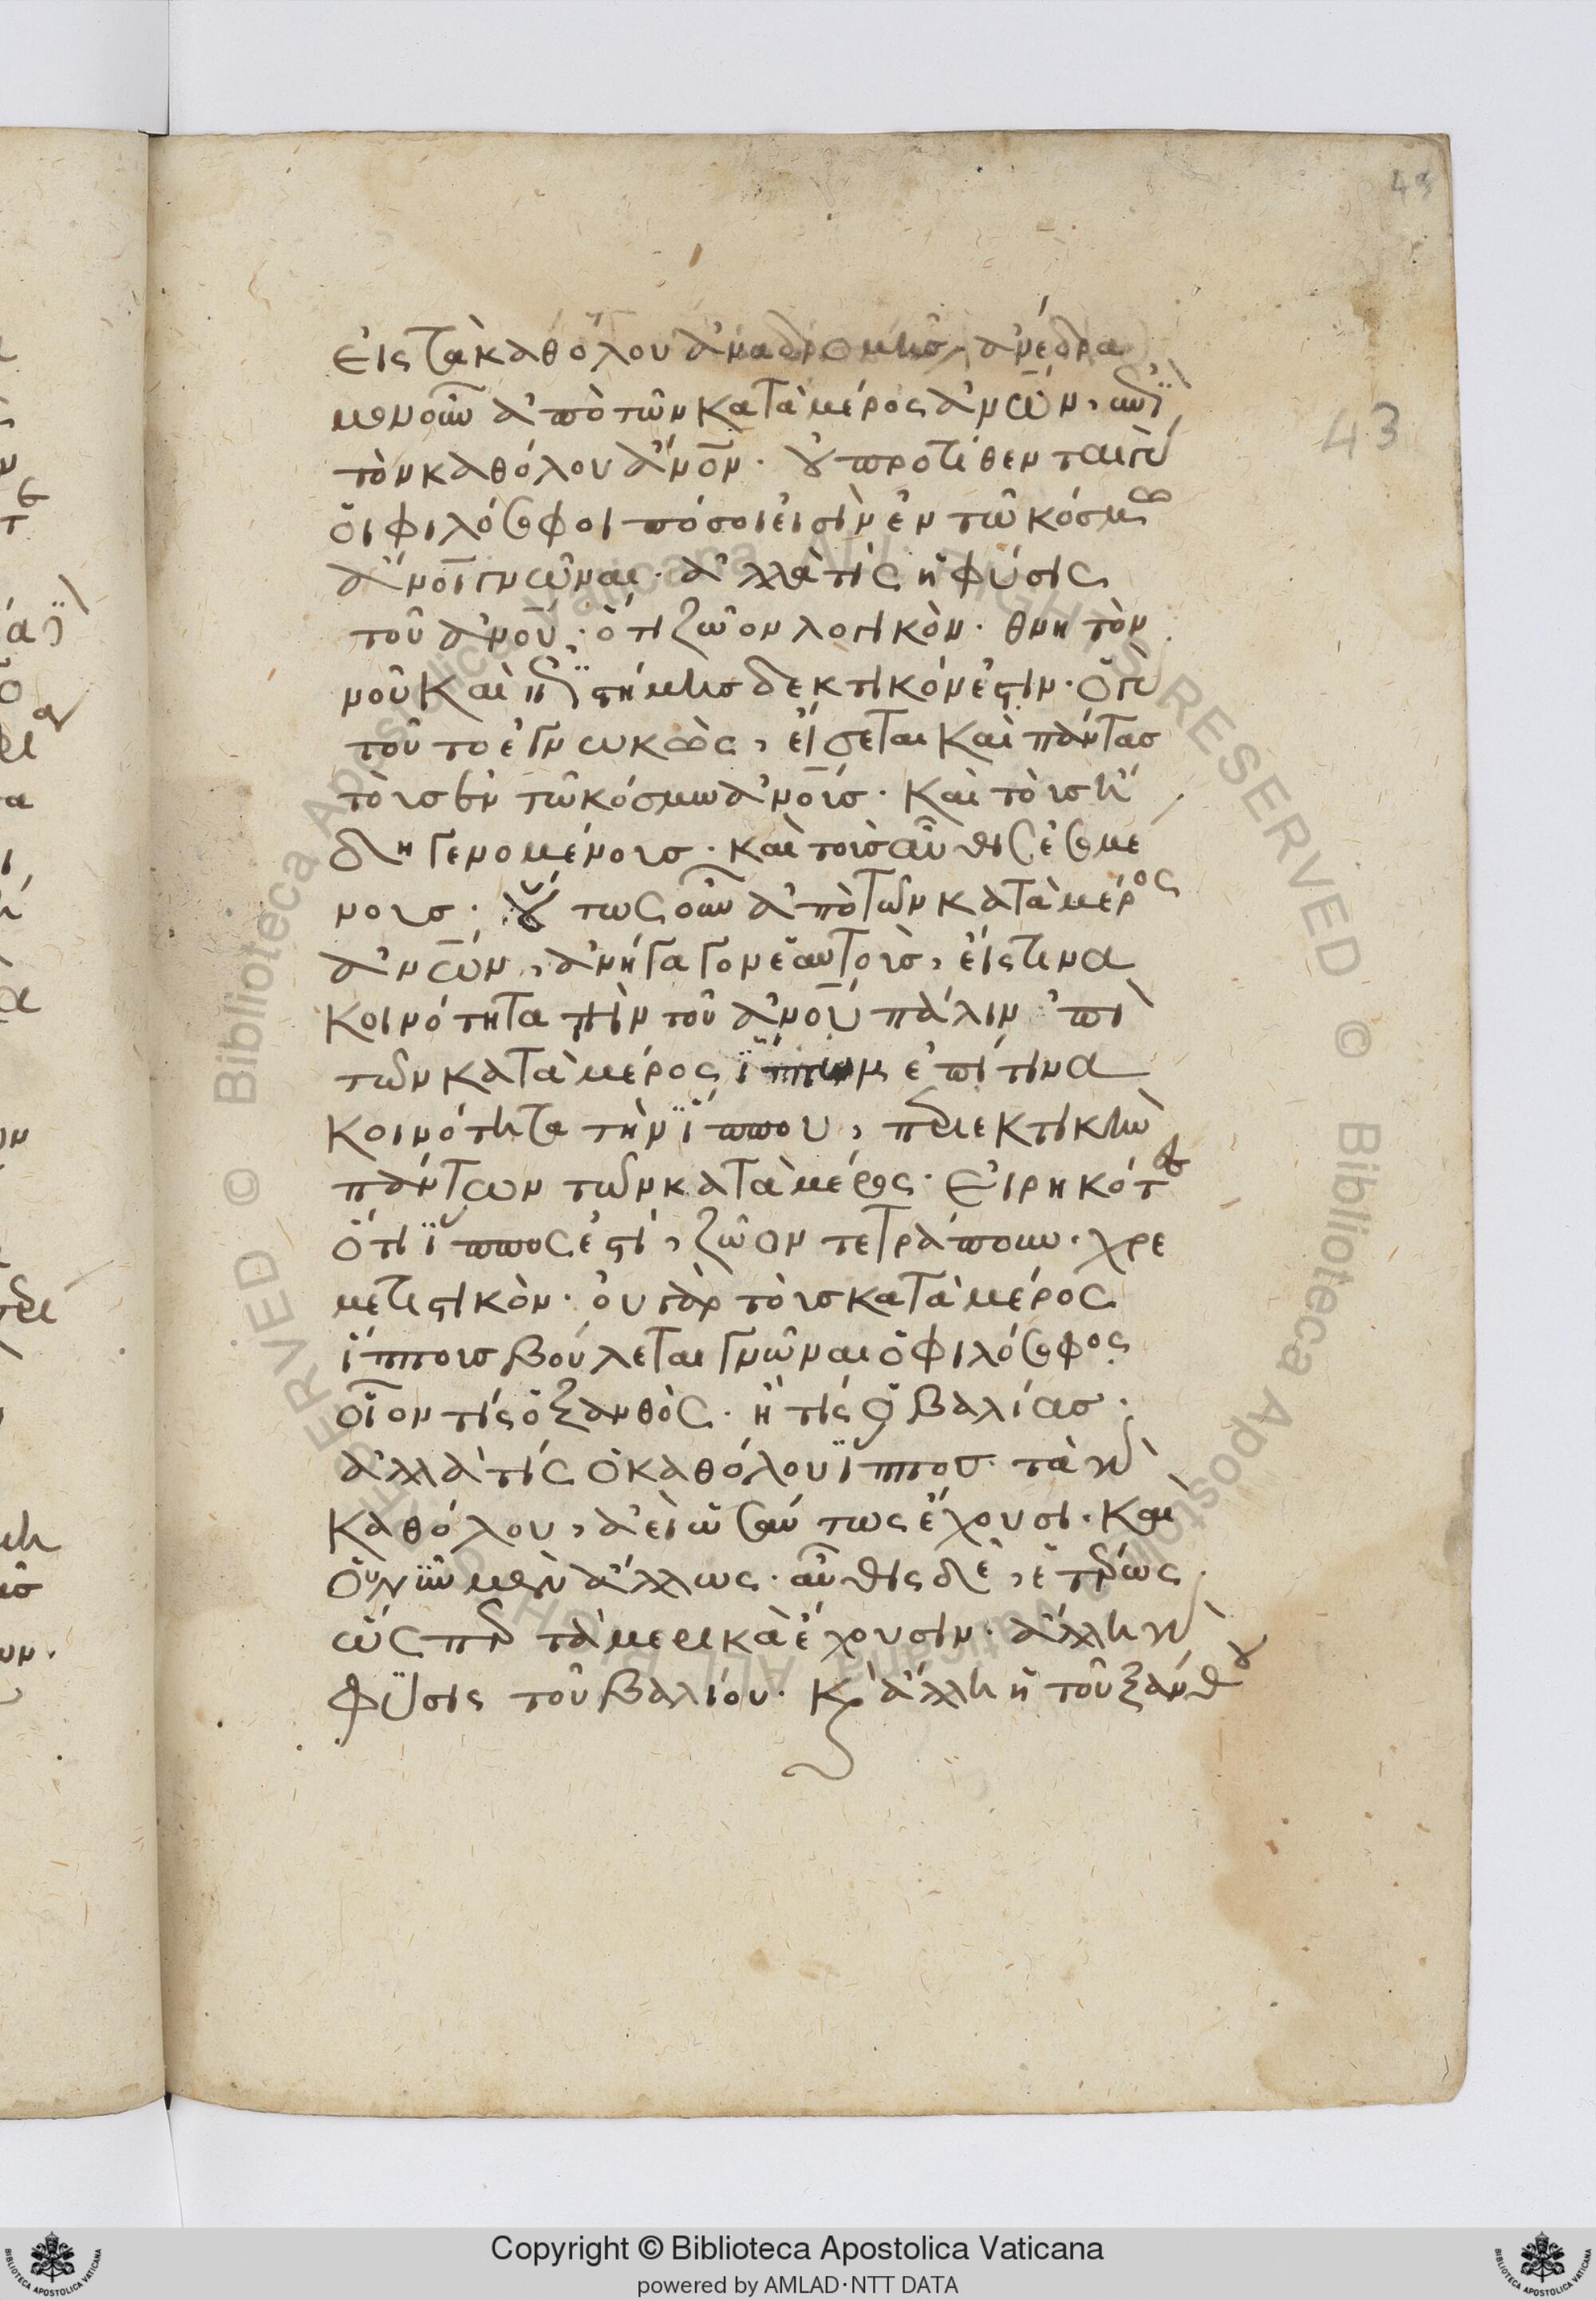 43
43
εἰς τὰ καθόλου ἀναδρομῆς, ἀνέδρα
μεν οὖν ἀπὸ τῶν κατὰ μέρος ἀν̅ων, ἐπὶ
τὸν καθόλου ἄν̅ον. οὐ προτίθενται γὰρ
οἱ φιλόσοφοι πόσοι εἰσὶν ἐν τῷ κόσμῳ
ἄν̅οι γνῶναι. ἀλλὰ τίς ἡ φύσις
τοῦ ἀν̅ου. ὅτι ζῶον λογικὸν. θνητὸν
νοῦ καὶ ἐπιστήμης δεκτικόν ἐστιν. ὁ γὰρ
τοῦτο ἐγνωκὼς, εἴσεται καὶ πάντας
τοὺς ἐν τῷ κόσμω ἀν̅ους. καὶ τοὺς ἤ
δη γενομένους. καὶ τοὺς αὖθις ἐσομέ
νους. οὕτως οὖν ἀπὸ τῶν κατὰ μέρος
ἀν̅ων, ἀνήγαγον ἑαυτοὺς, εἴς τινα
κοινότητα τὴν τοῦ ἀν̅ου πάλιν ἀπὸ
τῶν κατὰ μέρος ἵππων ἐπί τινα
κοινότητα τὴν ἵππου, περιεκτικὴν
πάντων τῶν κατὰ μέρος. εἰρηκότες
ὅτι ἵππος ἐστί, ζῶον τετράπουν. χρε
μετιστικὸν. οὐ γὰρ τοὺς κατὰ μέρος
ἵππους βούλεται γνῶναι ὁ φιλόσοφος
οἷον τίς ὁ ξανθὸς. ἢ τίς ὁ βαλίας.
ἀλλὰ τίς ὁ καθόλου ἵππος. τὰ γὰρ
καθόλου, ἀεὶ ὡσαύτως ἔχουσι. καὶ
οὐ νῦν μὲν ἄλλως. αὖθις δὲ, ἑτέρως
ὥσπερ τὰ μερικὰ ἔχουσιν. ἄλλη γὰρ
φύσις τοῦ βαλίου. κ ἄλλη ἡ τοῦ ξάνθου
Copyright © Biblioteca Apostolica Vaticana
powered by AMLAD·NTT DATA